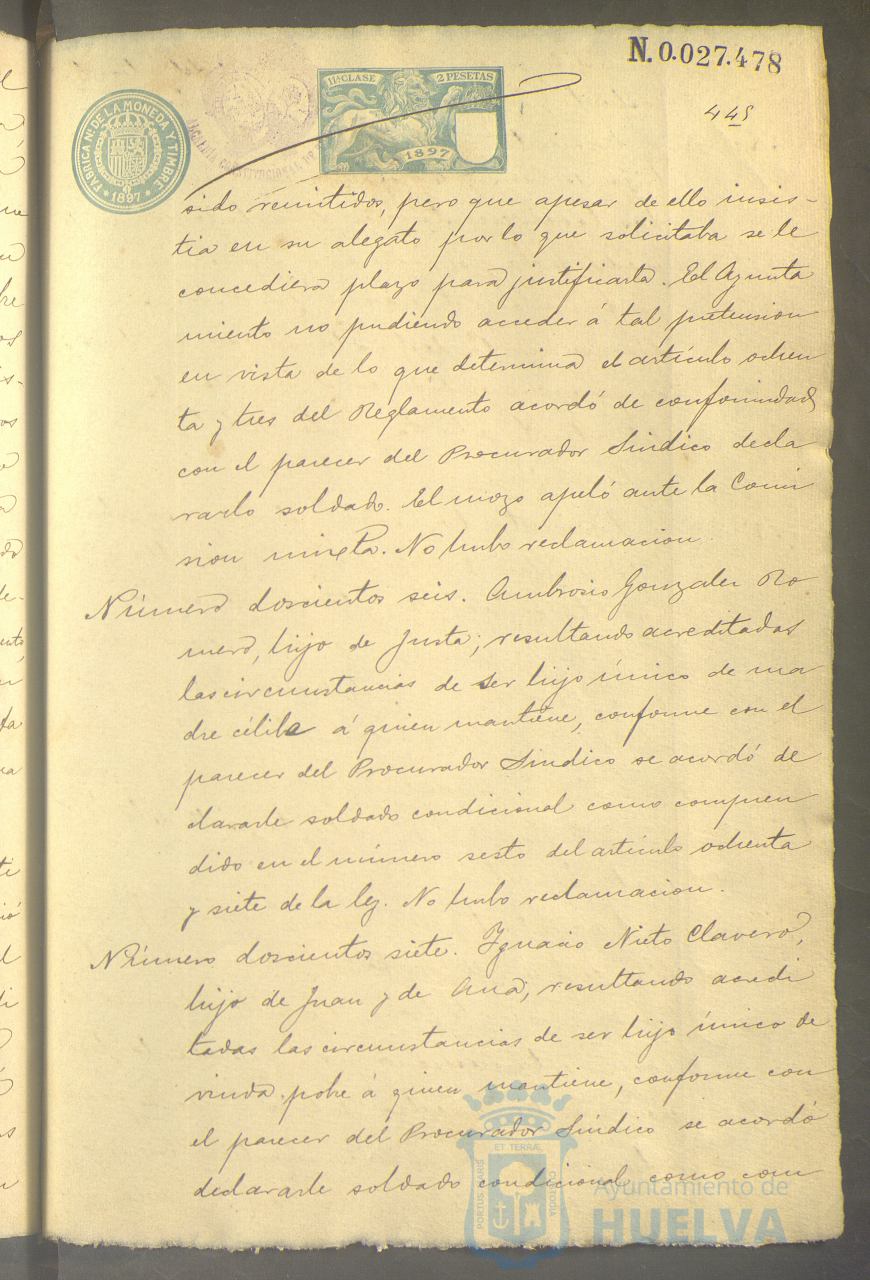 N.0.027.478
11ª CLASE 2 PESETAS
1897
FABRICA Nl. DE LA MONEDA Y TIMBRE
1897
445
sido remitidos, pero que apesar de ello insis-
tia en su alegato por lo que solicitaba se le
concediera plazo para justificarla. El Ayunta
miento no pudiendo acceder á tal pretension
en vista de lo que determina el artículo ochen
ta y tres del Reglamento acordó de conformidad
con el parecer del Procurador Sindico decla
rarlo soldado. El mozo apeló ante la Comi
sion mixta. No hubo reclamacion.
Número doscientos seis. Ambrosio Gonzalez Ro
mero, hijo de Justa; resultando acreditadas
las circunstancias de ser hijo único de ma
dre célibe á quien mantiene, conforme con el
parecer del Procurador Sindico se acordó de
clararle soldado condicional como compren
dido en el número sesto del artículo ochenta
y siete de la ley. No hubo reclamacion.
Número doscientos siete. Ignacio Nieto Clavero,
hijo de Juan y de Ana; resultando acredi
tadas las circunstancias de ser hijo único de
viuda pobre á quien mantiene, conforme con
el parecer del Procurador Síndico se acordó
declararle soldado condicional como com
PORTUS MARIS ET TERRÆ CUSTODIA
Ayuntamiento de
HUELVA